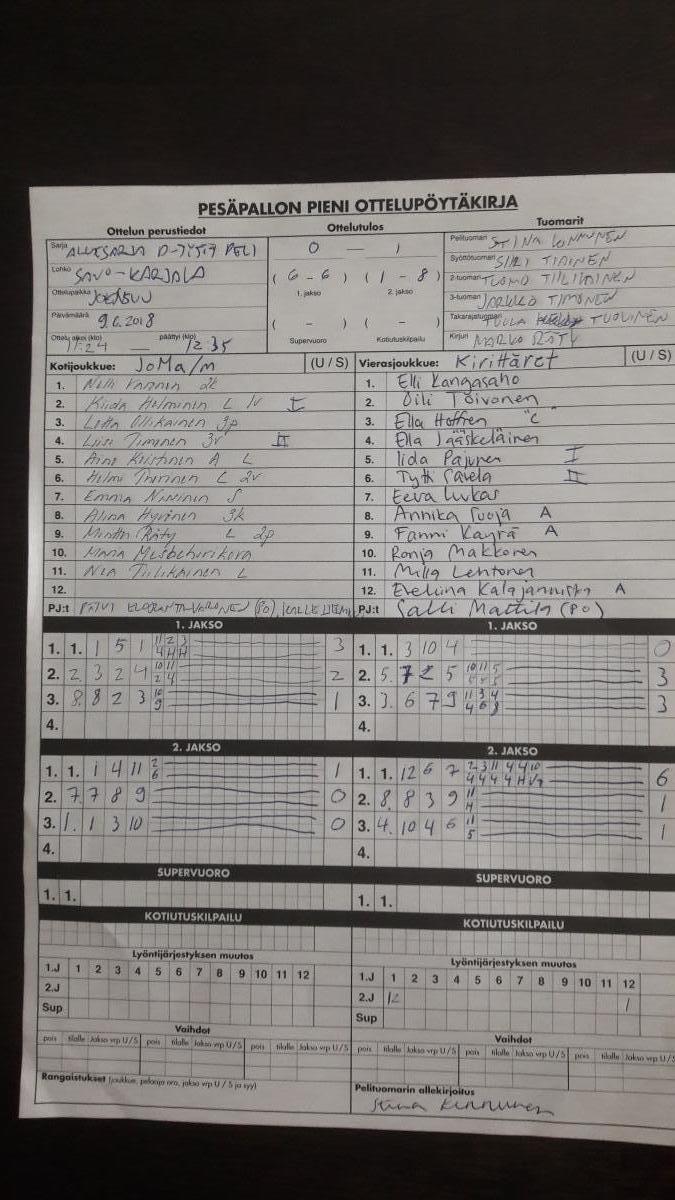 PESÄPALLON PIENI OTTELUPÖYTÄKIRJA
Ottelun perustiedot Ottelutulos Tuomarit
Sarja ALUESARJA D-TYTÖT PELI
Lohko SAVO-KARJALA
Ottelupaikka JOENSUU
Päivämäärä 9.6.2018
Ottelu alkoi (klo) 11.24 päättyi (klo) 12.35
0 — 1
( 6 - 6 ) ( 1 - 8 )
1. jakso 2. jakso
( - ) ( - )
Supervuoro Kotiutuskilpailu
Pelituomari STINA KINNUNEN
Syöttötuomari SIRI TIAINEN
2-tuomari TUOMO TIILIKAINEN
3-tuomari JARKKO TIMONEN
Takarajatuomari TUULA TUOLINEN
Kirjuri MARKO RÄTY
Kotijoukkue: JoMa/m (U / S)
1. Nelli 2k
2. Kiida Helminen L lv I
3. Lotta Ollikainen 3p
4. Liisi Timonen 3v II
5. Aino Keistinen A L
6. Helmi Tiorinen L 2v
7. Emma Nininen S
8. Alina Hyvönen 3k
9. Minttu Räty L 2p
10. Maria
11. Nea Tiilikainen L
12.
PJ:t PÄIVI (PO), KALLE
Vierasjoukkue: Kirittäret (U / S)
1. Elli Kangasaho
2. Oili Toivonen
3. Ella Hoffren "C"
4. Ella Jääskeläinen
5. Iida Pajunen I
6. Tytti Savela II
7. Eeva Lukas
8. Annika Suoja A
9. Fanni Käyrä A
10. Ronja Makkonen
11. Milla Lehtonen
12. Eveliina Kalajannisto A
PJ:t Salli Mattila (PO)
1. JAKSO
1. 1. 1 5 1 11 2 3 3
4 H H
2. 2. 3 2 4 10 11 2
2 4
3. 8. 8 2 3 10 1
9
4.
1. JAKSO
1. 1. 3 10 4 0
2. 5. 7 2 5 10 11 5 3
3. 3. 6 7 9 11 3 4 3
4 6 8
4.
2. JAKSO
1. 1. 1 4 11 2 1
6
2. 7. 7 8 9 0
3. 1. 1 3 10 0
4.
2. JAKSO
1. 1. 12 6 7 2 3 11 4 4 10 6
4 4 4 4 H
2. 8. 8 3 9 11 1
H
3. 4. 10 4 6 11 1
5
4.
SUPERVUORO
1. 1.
SUPERVUORO
1. 1.
KOTIUTUSKILPAILU
KOTIUTUSKILPAILU
Lyöntijärjestyksen muutos
1.J 1 2 3 4 5 6 7 8 9 10 11 12
2.J
Sup
Lyöntijärjestyksen muutos
1.J 1 2 3 4 5 6 7 8 9 10 11 12
2.J 12 1
Sup
Vaihdot
pois tilalle Jakso vrp U/S pois tilalle Jakso vrp U/S pois tilalle Jakso vrp U/S
Vaihdot
pois tilalle Jakso vrp U/S pois tilalle Jakso vrp U/S pois tilalle Jakso vrp U/S
Rangaistukset (joukkue, pelaaja nro, jakso vrp U / S ja syy)
Pelituomarin allekirjoitus
Stina Kinnunen